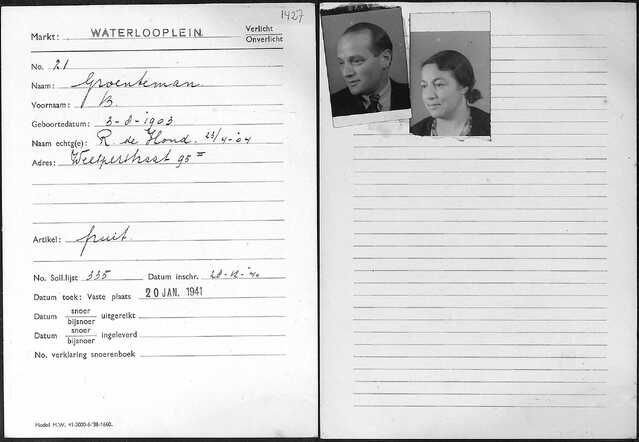 1427
Markt: WATERLOOPLEIN. Verlicht
Onverlicht
No. 21
Naam: Groenteman.
Voornaam: B.
Geboortedatum: 3-8-1903
Naam echtg(e): R. de Hond. 23/4-'04
Adres: Weesperstraat 95 II
Artikel: fruit.
No. Soll.lijst 335 Datum inschr. 28-12-'40
Datum toek: Vaste plaats 20 JAN. 1941
Datum snoer uitgereikt
bijsnoer
Datum snoer ingeleverd
bijsnoer
No. verklaring snoerenboek
Model M.W. 41-3000-6-'38-1660.